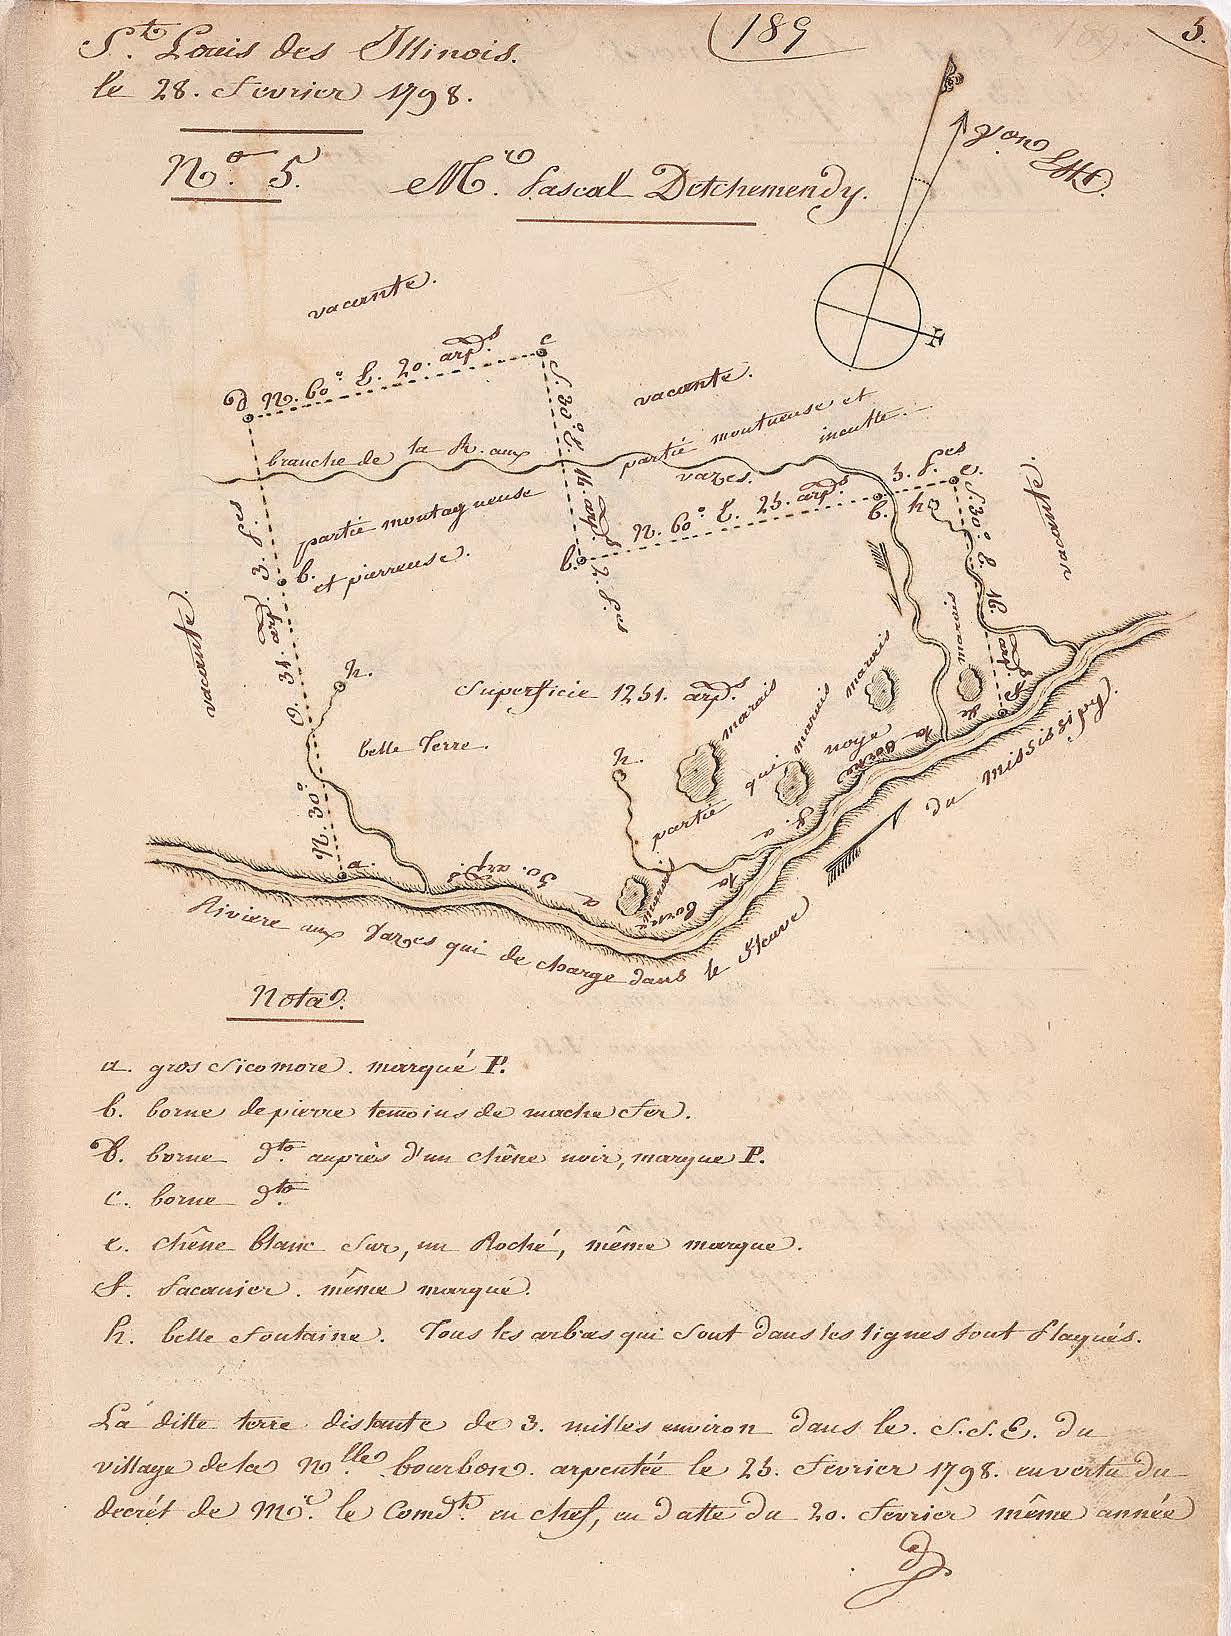 St. Louis des Illinois.
le 28. Fevrier 1798.
(189
5.
No. 5.
Mr. Pascal Detchemendy.
vacante.
d N. 60° E. 20. arpds. c
S. 30° E. 14. arpds.
vacante.
branche de la R. aux vazes.
partie montueuse et
inculte.
partie montagneuse
et pierreuse.
b.
b. N. 60° E. 25. arpds. b. 5. Pes e.
2. Pes
h
S. 30° E. 16. arpds.
vacante.
vacante.
N. 30° O. 31. arpd. 3. Pes
h.
Superficie 1251. arpds.
belle Terre.
h.
marais
marais
marais
marais
marais
partie qui noye
a.
50. arpds. a la borne
f. a la borne de
Riviere aux Vazes qui de charge dans le Fleuve
du Mississipy.
Nota.
a. gros Sicomore. marqué P.
b. borne de pierre temoins de mache Fer.
d. borne dto. auprès d'un chêne noir, marque P.
c. borne dto.
e. chêne blanc Sur, un Roché, même marque.
f. Pacanier. même marque.
h. belle Fontaine. Tous les arbres qui Sont dans les lignes Sont Plaqués.
La ditte terre distante de 3. milles environ dans le. S.S.E. du
village de la Nlle. bourbon. arpentée le 25. Fevrier 1798. en vertu du
decrêt de Mr. le Comdt. en chef, en datte du 20. Fevrier même année